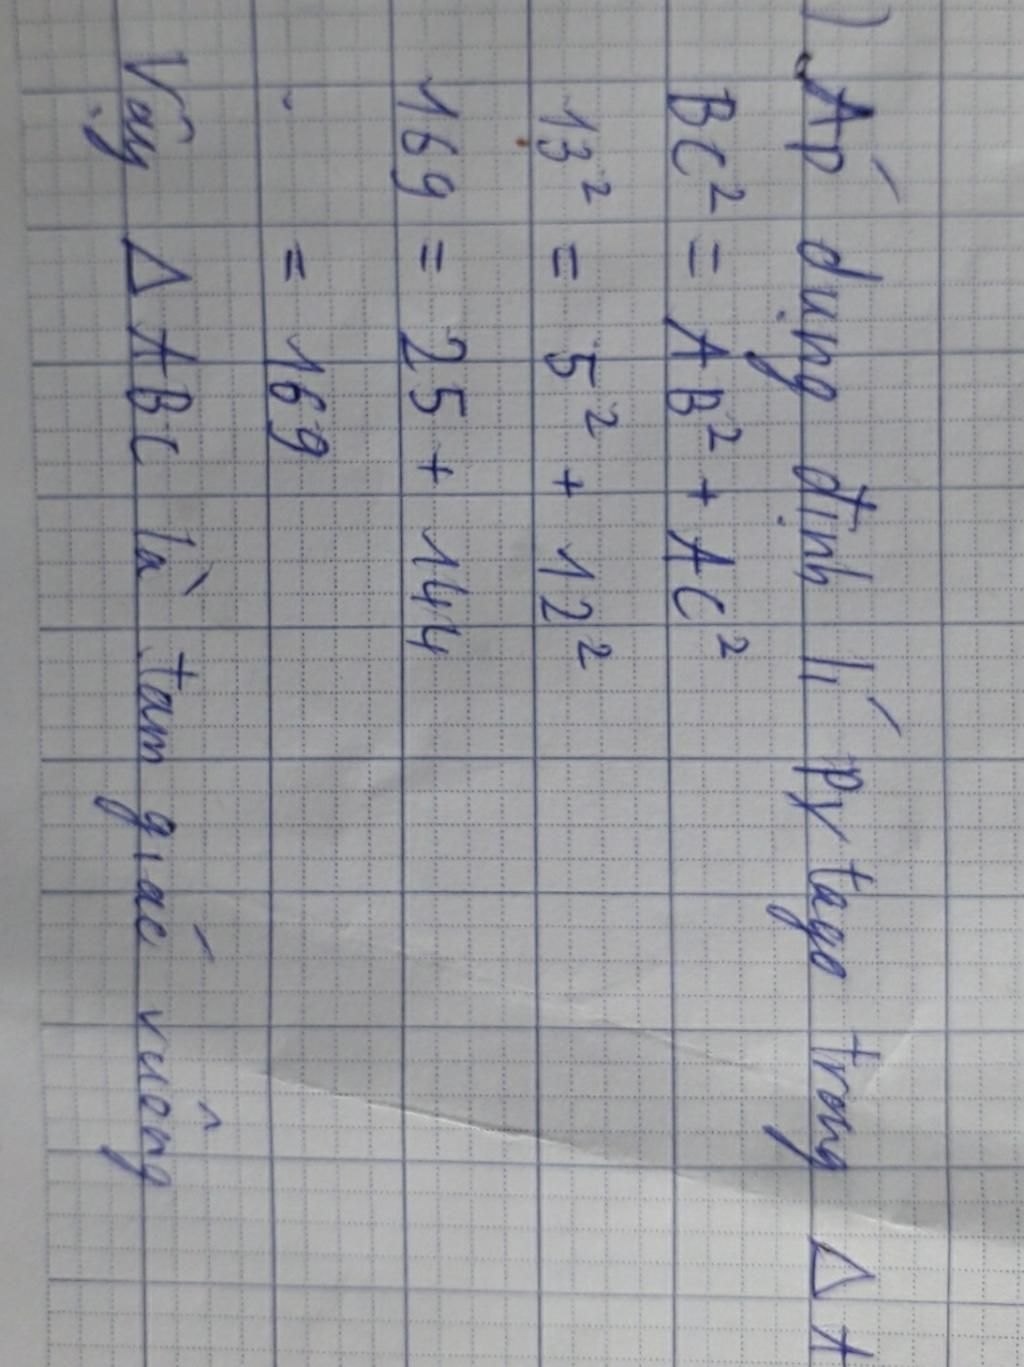 ) Áp dụng định lí pytago trong Δ A
BC² = AB² + AC²
13² = 5² + 12²
169 = 25 + 144
= 169
Vậy Δ ABC là tam giác vuông